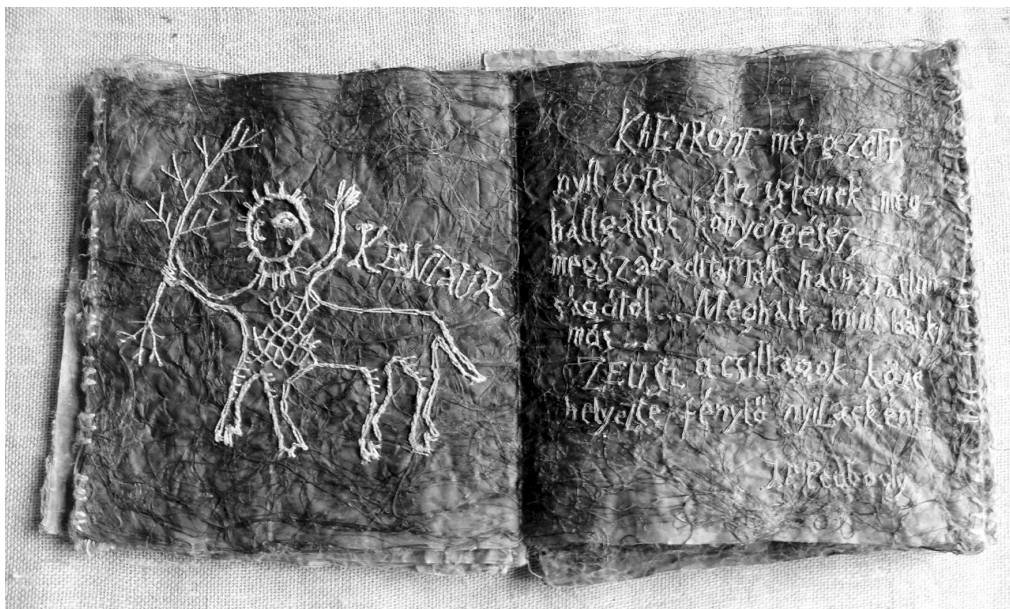 KENTAUR
KHEIRÓNT mérgezett
nyíl érte... Az istenek meg-
hallgatták könyörgését,
megszabadították halhatatlan-
ságától... Meghalt, mint bárki
más...
ZEUSZ a csillagok közé
helyezte fénylő nyilasként.
J. P. Peabody